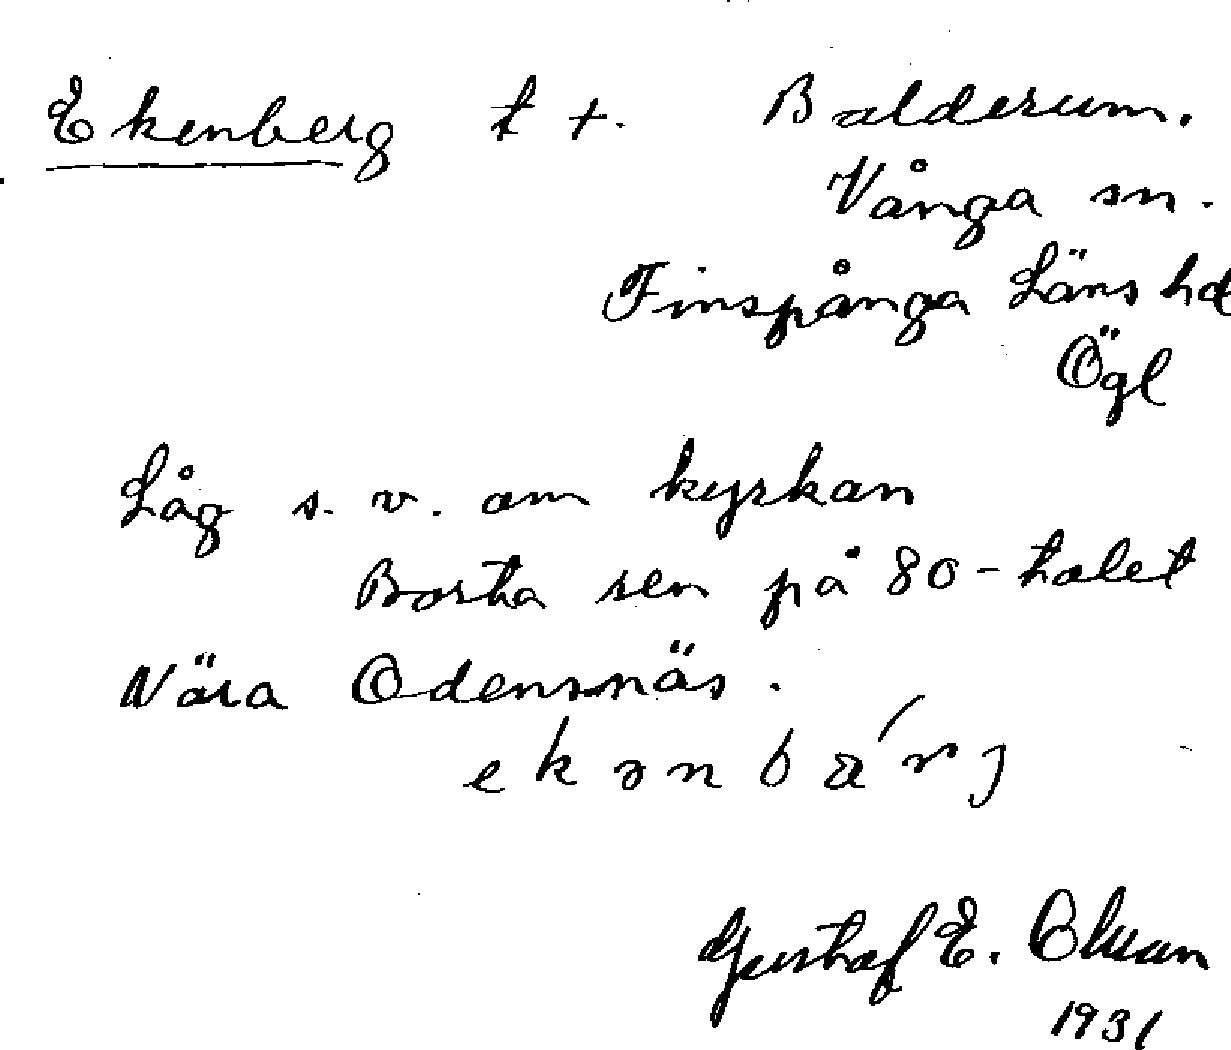 Ekenberg t +. Balderum.
Vånga sn.
Finspånga Läns hd
Ögl
Låg s. v. om kyrkan
Borta sen på 80-talet
Nära Odensnäs.
ekənbä́rj
Gustaf E. Olsson
1931